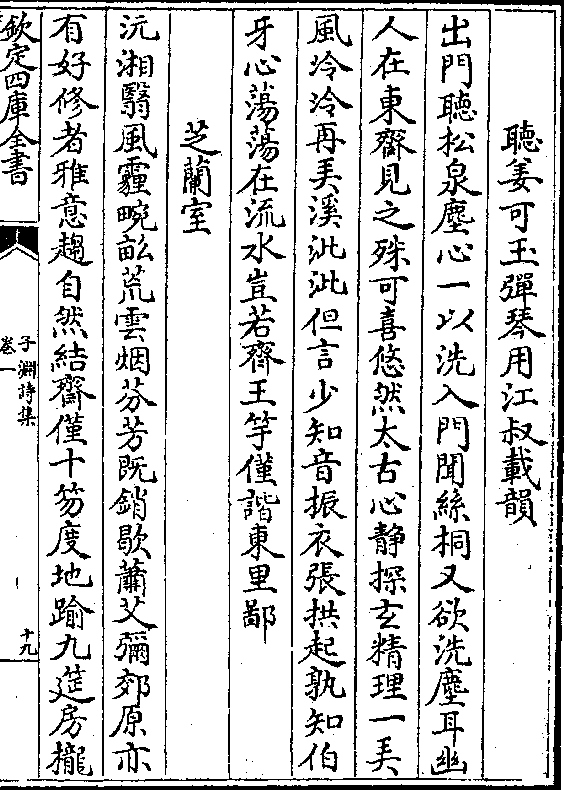 聽姜可玉彈琴用江叔載韻
出門聽松泉塵心一以洗入門聞絲桐又欲洗塵耳幽
人在東齋見之殊可喜悠然太古心靜探玄精理一弄
風泠泠再弄溪沘沘但言少知音振衣張拱起孰知伯
牙心蕩蕩在流水豈若齊王竽僅諧東里鄙
芝蘭室
沅湘翳風霾畹畝荒雲烟芬芳既銷歇蕭艾彌郊原亦
有好修者雅意趨自然結齋僅十笏度地踰九筵房櫳
欽定四庫全書
子淵詩集
卷一
十九